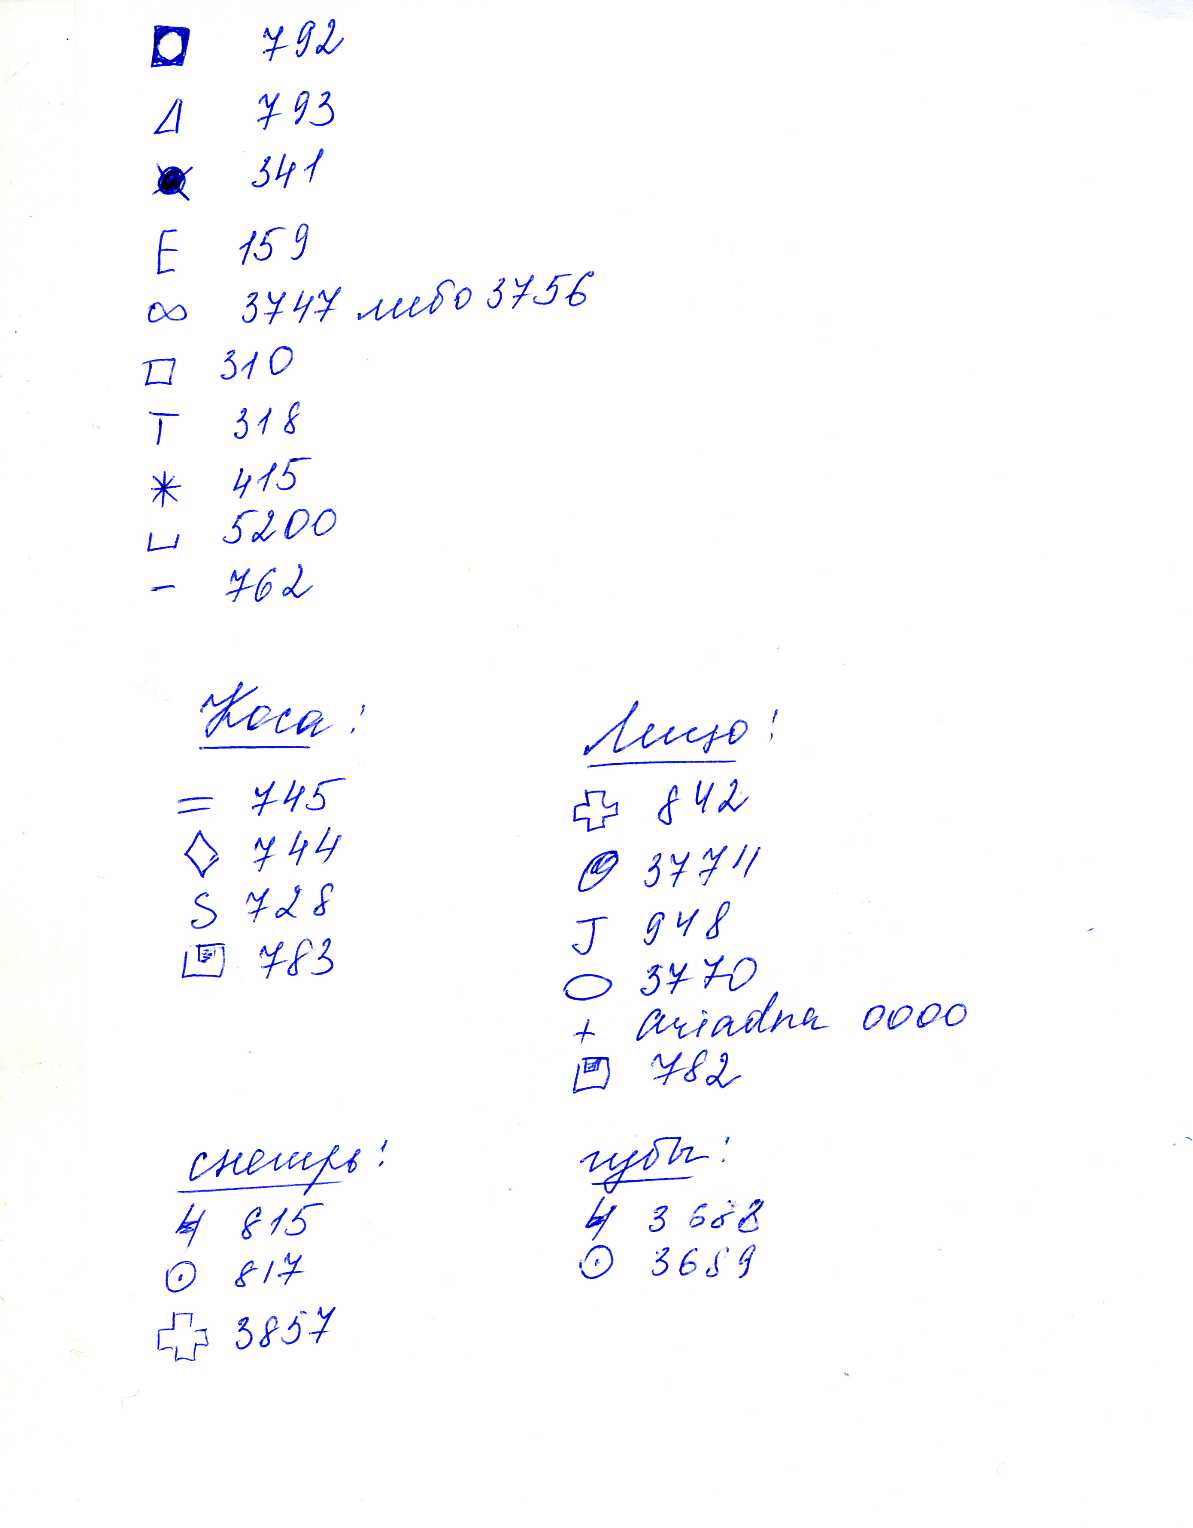 792
Δ 793
341
E 159
∞ 3747 либо 3756
□ 310
T 318
* 415
⊔ 5200
- 762
Коса:
= 745
◇ 744
S 728
783
Лицо:
842
3774
J 948
3770
+ Ariadna 0000
782
снегирь:
815
⊙ 817
3857
губы:
3688
⊙ 3689